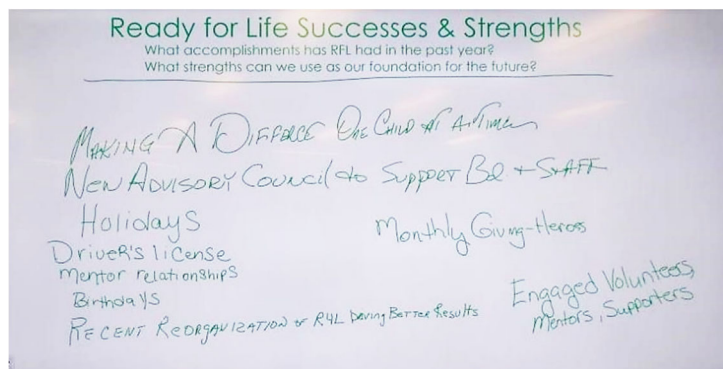 Ready for Life Successes & Strengths
What accomplishments has RFL had in the past year?
What strengths can we use as our foundation for the future?
MAKING A DIFFERECE ONE CHILD AT A TIME
NEW ADVISORY COUNCIL to SUPPORT BD + STAFF
Holidays
Monthly Giving-Heroes
Driver's license
Mentor relationships
Birthdays
Engaged Volunteers,
Mentors, Supporters
RECENT REORGANIZATION of R4L Having Better Results